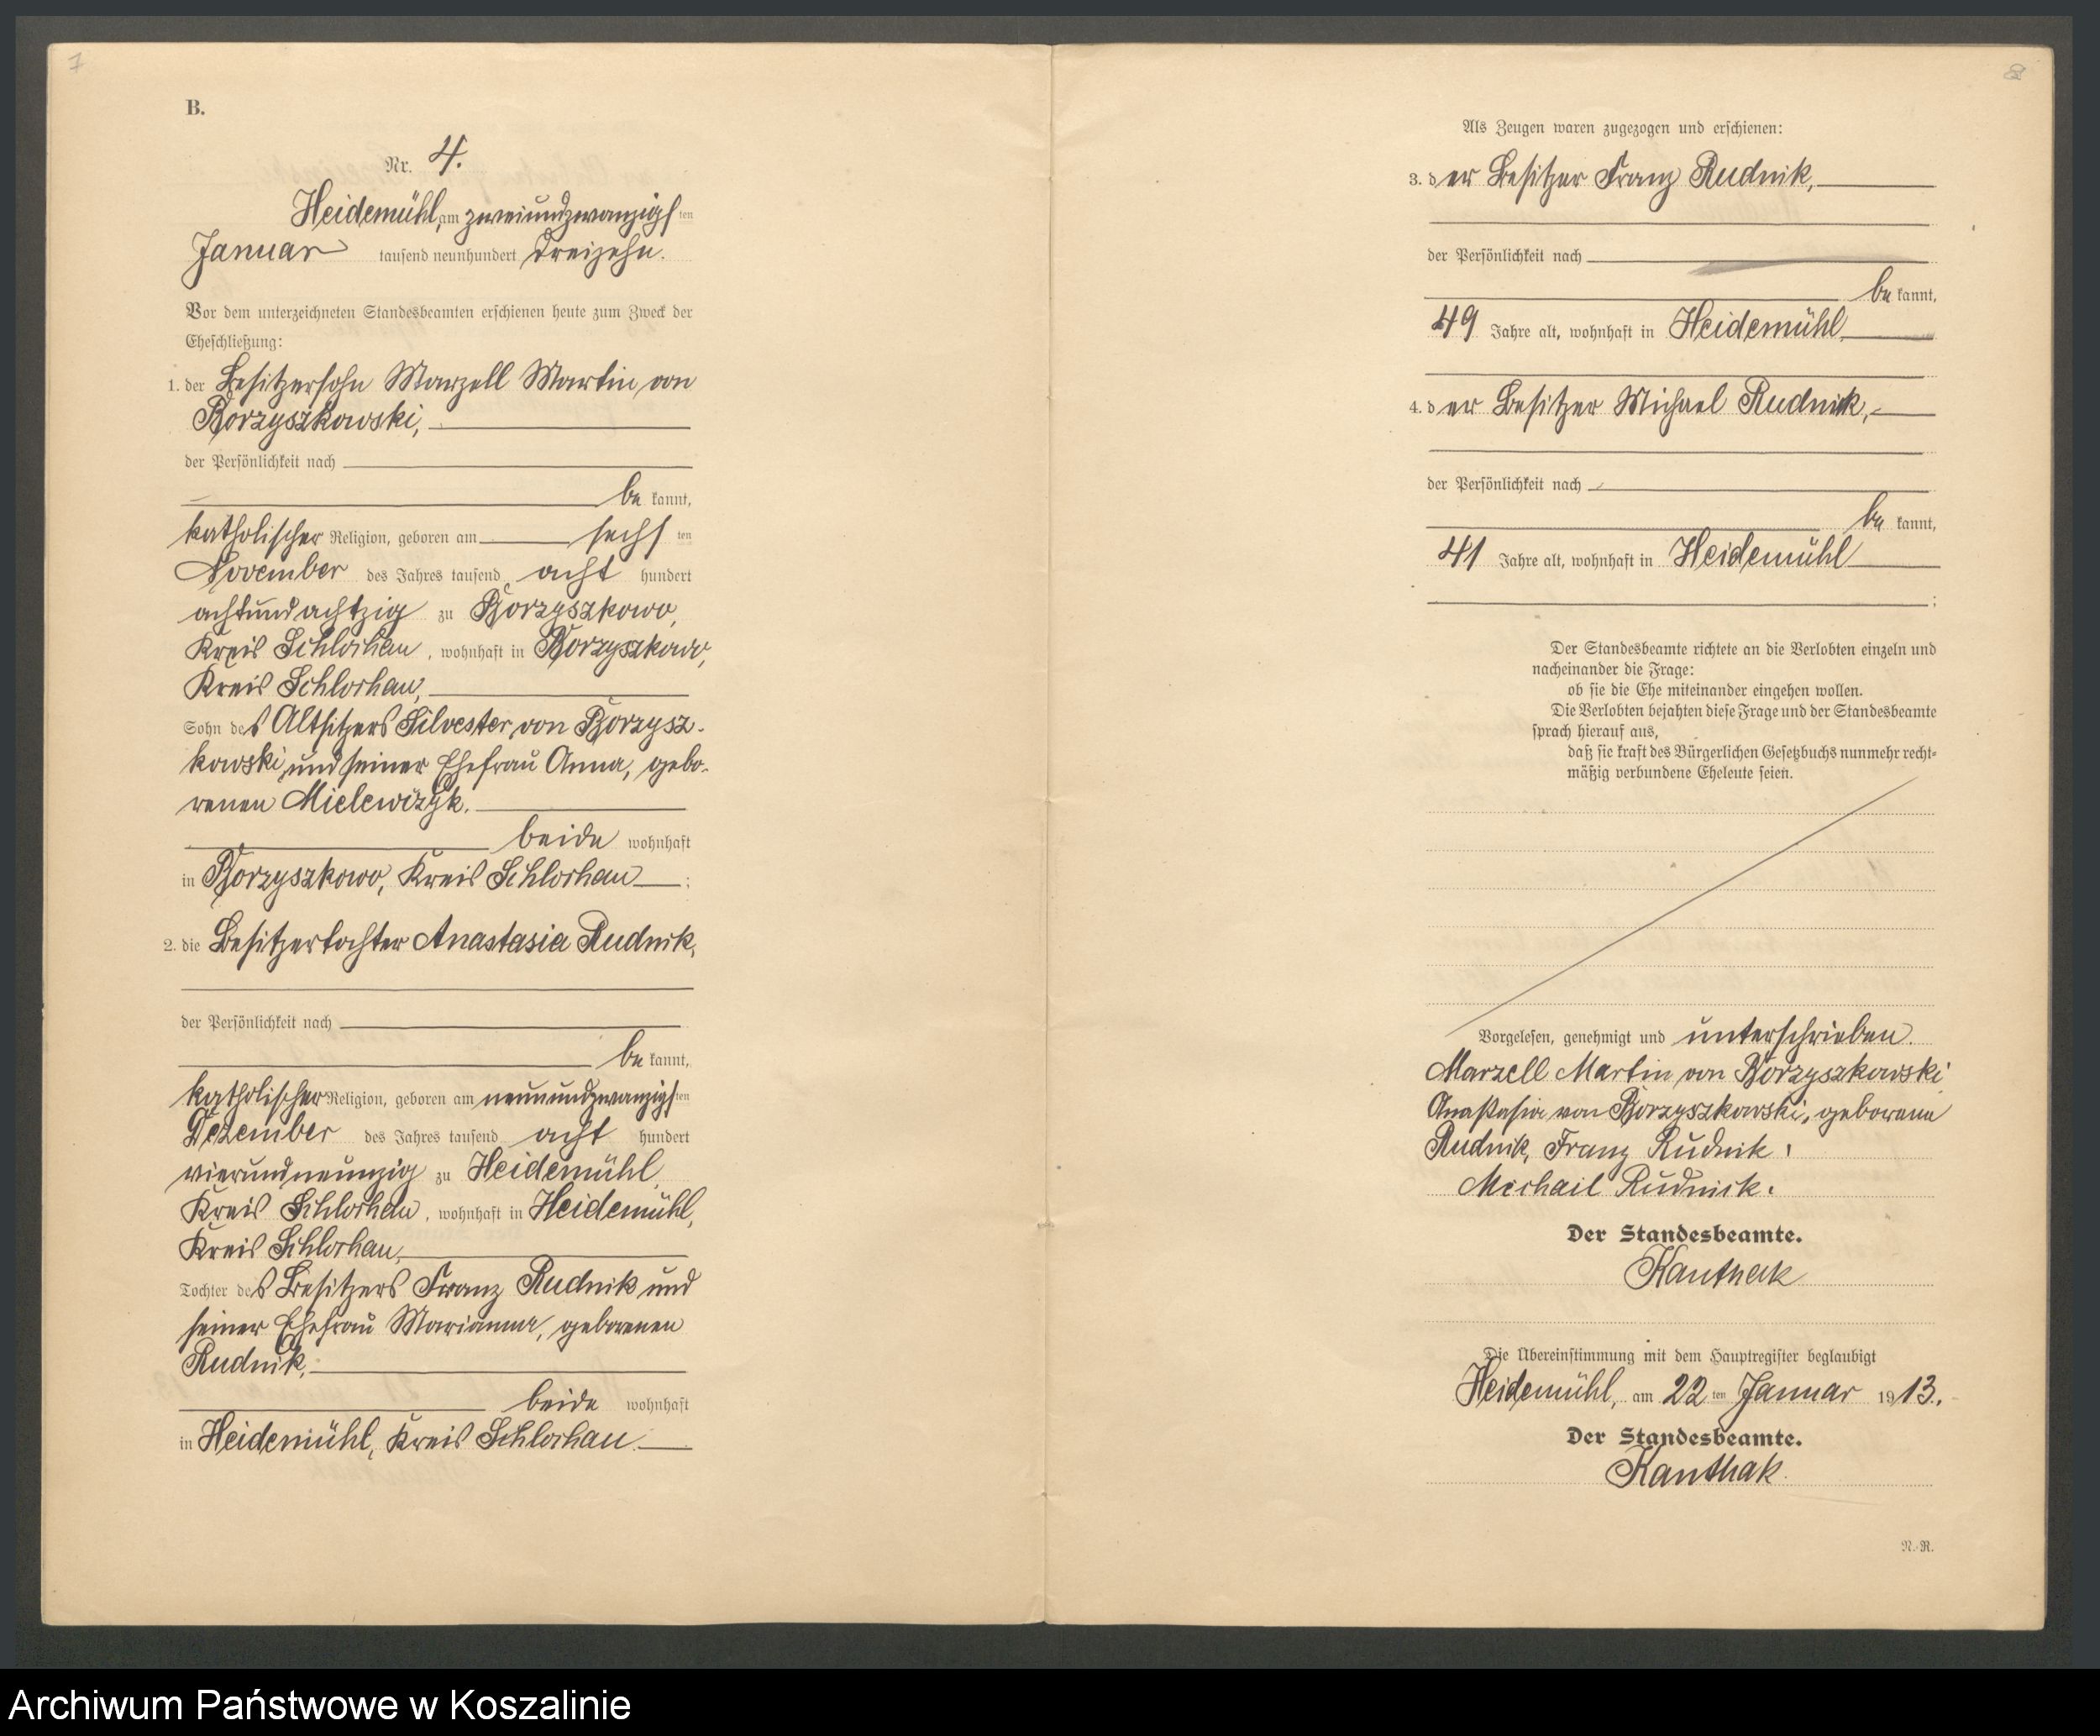 7
B.
Nr. 4.
Heidemühl, am zweiundzwanzigsten
Januar tausend neunhundert dreizehn.
Vor dem unterzeichneten Standesbeamten erschienen heute zum Zweck der
Eheschließung:
1. der Besitzersohn Marzell Martin von
Borzyszkowski,
der Persönlichkeit nach
be kannt,
katholischer Religion, geboren am sechsten
November des Jahres tausend acht hundert
achtundachtzig zu Borzyszkowo,
Kreis Schlochau, wohnhaft in Borzyszkowo,
Kreis Schlochau,
Sohn des Altsitzers Silvester von Borzysz-
kowski und seiner Ehefrau Anna, gebo-
renen Mielewczyk.
beide wohnhaft
in Borzyszkowo, Kreis Schlochau;
2. die Besitzertochter Anastasia Rudnik,
der Persönlichkeit nach
be kannt,
katholischer Religion, geboren am neunundzwanzigsten
Dezember des Jahres tausend acht hundert
vierundneunzig zu Heidemühl,
Kreis Schlochau, wohnhaft in Heidemühl,
Kreis Schlochau,
Tochter des Besitzers Franz Rudnik und
seiner Ehefrau Marianna, geborenen
Rudnik,
beide wohnhaft
in Heidemühl, Kreis Schlochau.
8
Als Zeugen waren zugezogen und erschienen:
3. der Besitzer Franz Rudnik,
der Persönlichkeit nach
be kannt,
49 Jahre alt, wohnhaft in Heidemühl,
4. der Besitzer Michael Rudnick,
der Persönlichkeit nach
be kannt,
41 Jahre alt, wohnhaft in Heidemühl
;
Der Standesbeamte richtete an die Verlobten einzeln und
nacheinander die Frage:
ob sie die Ehe miteinander eingehen wollen.
Die Verlobten bejahten diese Frage und der Standesbeamte
sprach hierauf aus,
daß sie kraft des Bürgerlichen Gesetzbuchs nunmehr recht-
mäßig verbundene Eheleute seien.
Vorgelesen, genehmigt und unterschrieben.
Marzell Martin von Borzyszkowski
Anastasia von Borzyszkowski, geborene
Rudnik, Franz Rudnik,
Michail Rudnick.
Der Standesbeamte.
Kanthak
Die Übereinstimmung mit dem Hauptregister beglaubigt
Heidemühl, am 22 ten Januar 1913.
Der Standesbeamte.
Kanthak.
N.-R.
Archiwum Państwowe w Koszalinie